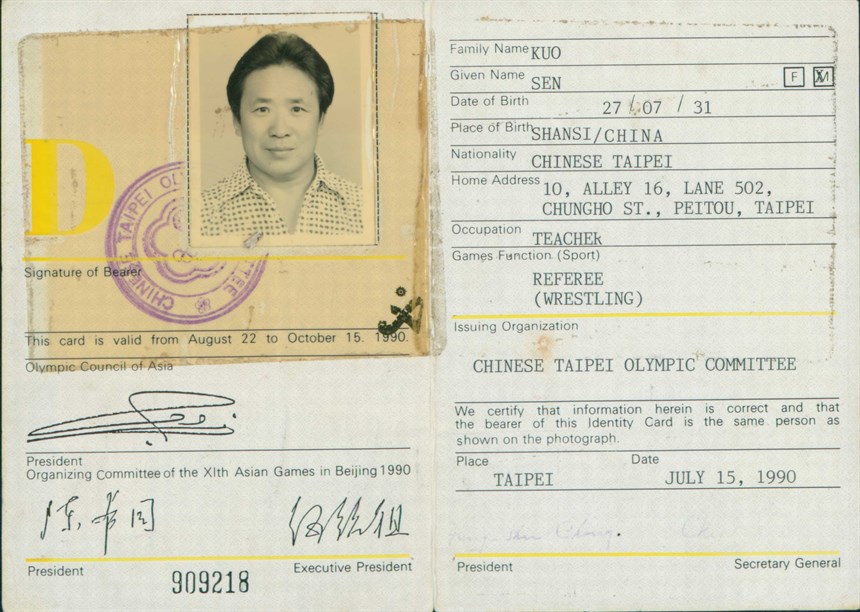 D
CHINESE TAIPEI OL
TTEE
Signature of Bearer
This card is valid from August 22 to October 15. 1990.
Olympic Council of Asia
President
Organizing Committee of the XIth Asian Games in Beijing 1990
President
Executive President
909218
Family Name KUO
Given Name SEN F M
Date of Birth 27 / 07 / 31
Place of Birth SHANSI/CHINA
Nationality CHINESE TAIPEI
Home Address 10, ALLEY 16, LANE 502,
CHUNGHO ST., PEITOU, TAIPEI
Occupation TEACHER
Games Function (Sport)
REFEREE
(WRESTLING)
Issuing Organization
CHINESE TAIPEI OLYMPIC COMMITTEE
We certify that information herein is correct and that
the bearer of this Identity Card is the same person as
shown on the photograph.
Place Date
TAIPEI JULY 15, 1990
President Secretary General